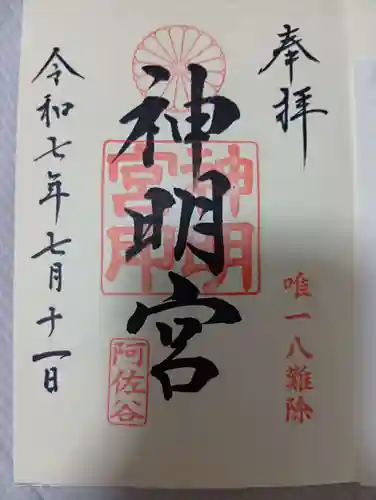 奉拝
唯一八難除
神明宮
神明宮印
阿佐谷
令和七年七月十一日